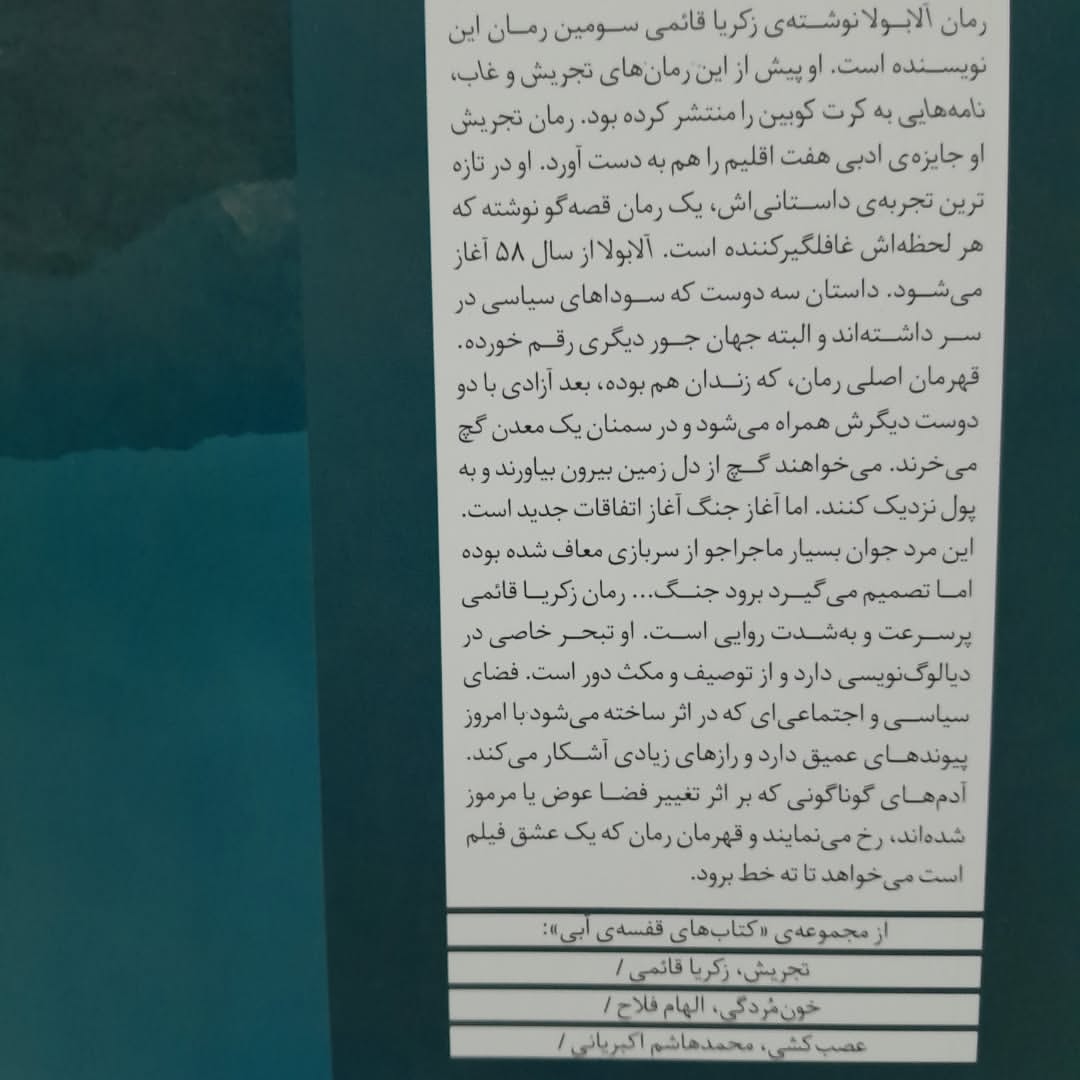 رمان آلابولا نوشته‌ی زکریا قائمی سومین رمان این
نویسنده است. او پیش از این رمان‌های تجریش و غاب،
نامه‌هایی به کرت کوبین را منتشر کرده بود. رمان تجریش
او جایزه‌ی ادبی هفت اقلیم را هم به دست آورد. او در تازه
ترین تجربه‌ی داستانی‌اش، یک رمان قصه‌گو نوشته که
هر لحظه‌اش غافلگیرکننده است. آلابولا از سال ۵۸ آغاز
می‌شود. داستان سه دوست که سوداهای سیاسی در
سر داشته‌اند و البته جهان جور دیگری رقم خورده.
قهرمان اصلی رمان، که زندان هم بوده، بعد آزادی با دو
دوست دیگرش همراه می‌شود و در سمنان یک معدن گچ
می‌خرند. می‌خواهند گچ از دل زمین بیرون بیاورند و به
پول نزدیک کنند. اما آغاز جنگ آغاز اتفاقات جدید است.
این مرد جوان بسیار ماجراجو از سربازی معاف شده بوده
اما تصمیم می‌گیرد برود جنگ... رمان زکریا قائمی
پرسرعت و به‌شدت روایی است. او تبحر خاصی در
دیالوگ‌نویسی دارد و از توصیف و مکث دور است. فضای
سیاسی و اجتماعی‌ای که در اثر ساخته می‌شود با امروز
پیوندهای عمیق دارد و رازهای زیادی آشکار می‌کند.
آدم‌های گوناگونی که بر اثر تغییر فضا عوض یا مرموز
شده‌اند، رخ می‌نمایند و قهرمان رمان که یک عشق فیلم
است می‌خواهد تا ته خط برود.
از مجموعه‌ی «کتاب‌های قفسه‌ی آبی»:
تجریش، زکریا قائمی /
خون‌مُردگی، الهام فلاح /
عصب‌کشی، محمدهاشم اکبریانی /